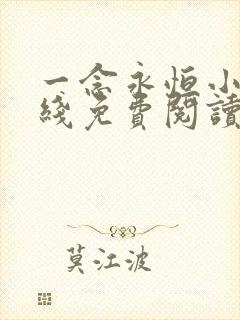 一念永恒小
綫免費閱讀
莫江波